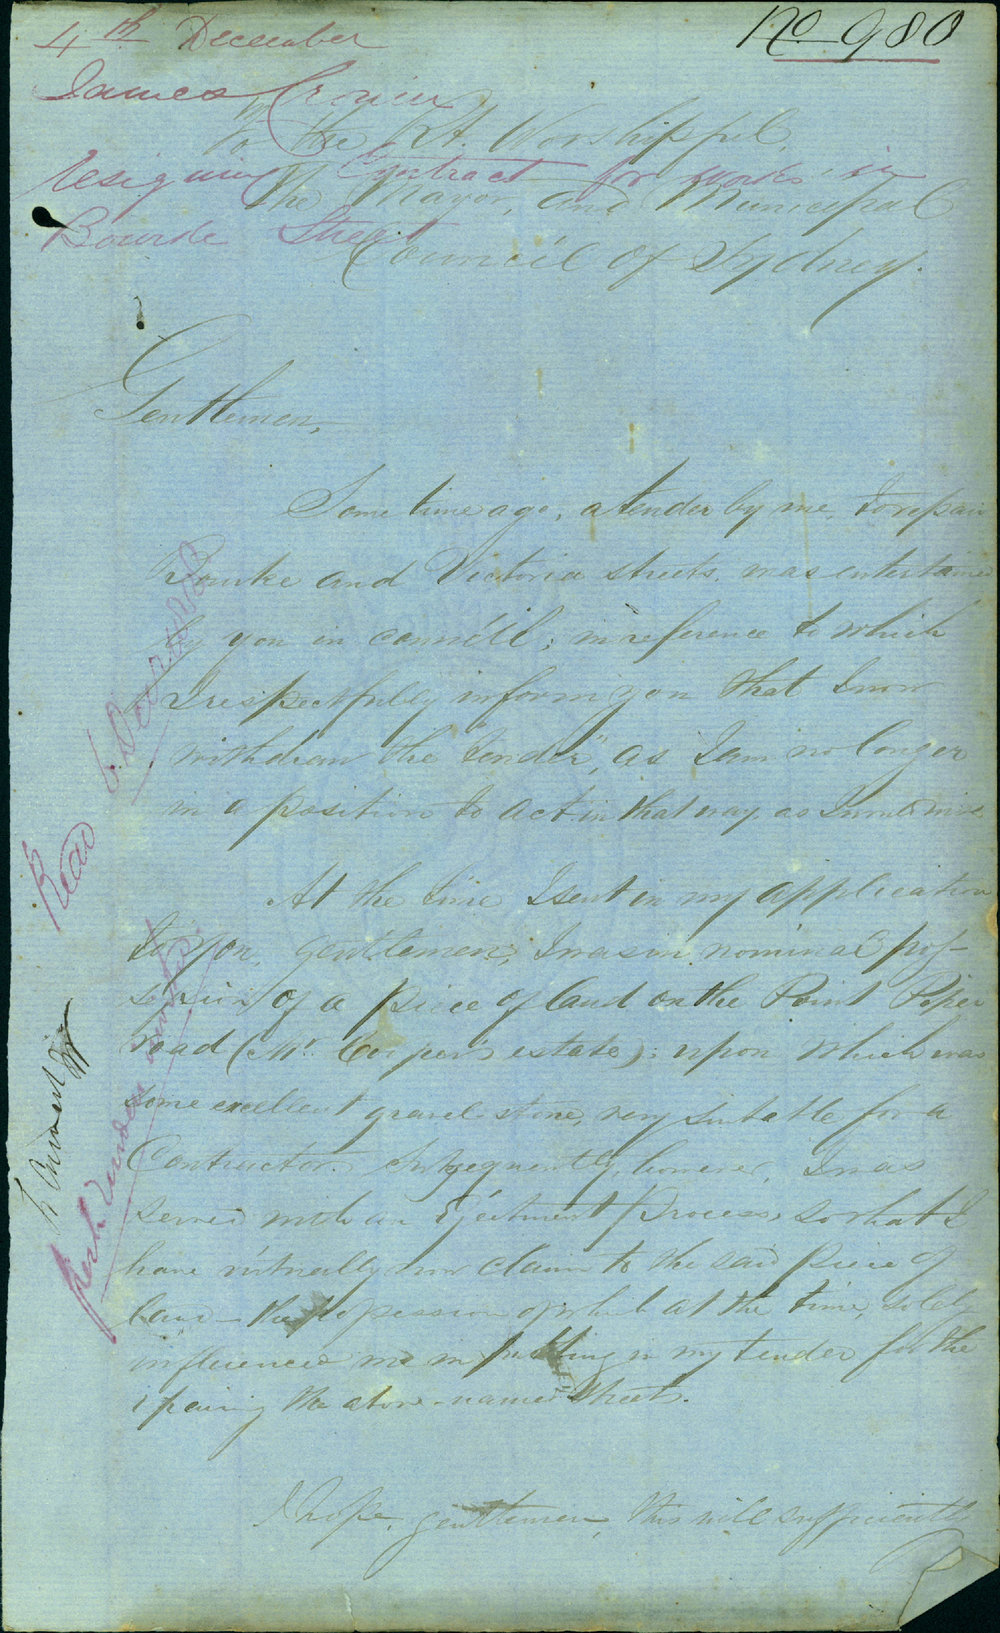 No 980
4th December
James Cronin
resigning Contract for works in
Bourke Street
To the Rt. Worshippful,
The Mayor, and Municipal
Council of Sydney.
Gentlemen,
Some time ago, a tender by me, to repair
Bourke and Victoria streets, was entertained
by you in council; in reference to which
I respectfully inform you that I now
withdraw the "tender", as I am no longer
in a position to act in that way as I
At the time I sent in my application
to you, gentlemen, I was in nominal pos-
session of a piece of land on the Point Piper
road (Mr. Cooper's estate); upon which was
some excellent gravel-stone, very suitable for a
Contractor. Subsequently, however, I was
served with an Ejectment Process, so that I
have virtually now claim to the said piece of
land - the possession of which at the time, solely
influenced me in putting in my tender for the
repairing the above-named Streets.
I hope, gentlemen, this will sufficiently
Read 6 Decr